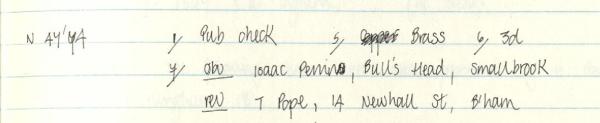 N 44'44 1/ Pub check 5/ Brass 6/ 3d
7/ obv Isaac Perrins, Bull's Head, Smallbrook
rev T Pope, 14 Newhall St, B'ham